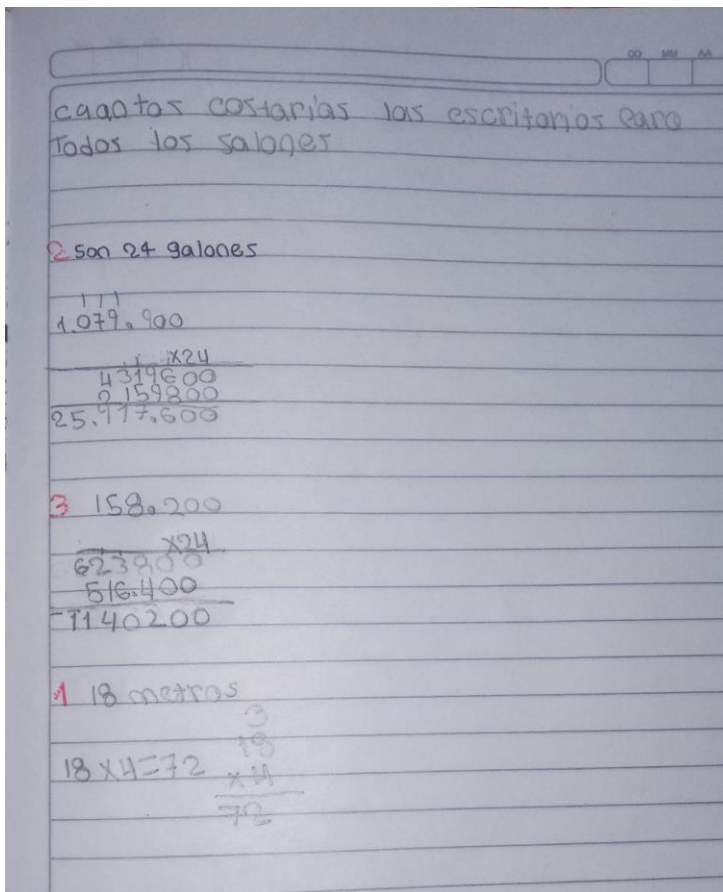 DD MM AA
cuantos costarias las escritorios para
Todos los salones
2 son 24 galones
1 1 1
1.079.900
x24
4319600
2159800
25.917.600
3 158.200
x24
623800
516.400
1140200
1 18 metros
3
18
18 x 4=72 x 4
72